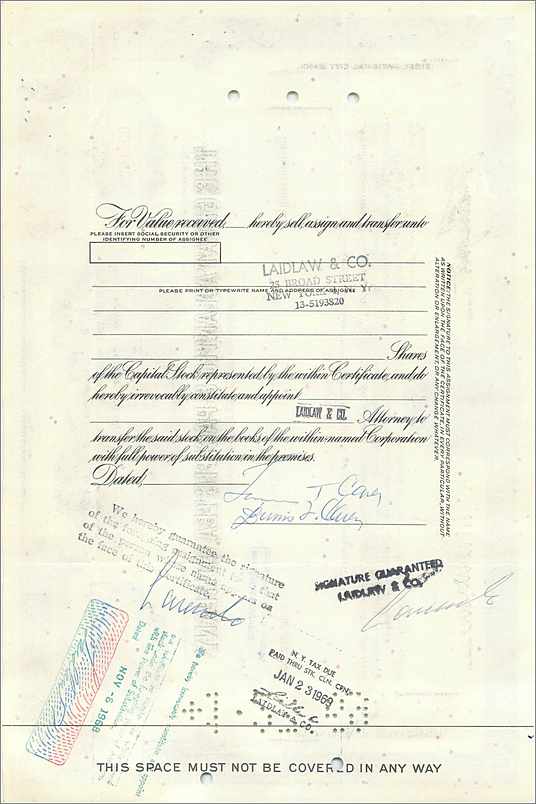 For Value received, hereby sell, assign and transfer unto
PLEASE INSERT SOCIAL SECURITY OR OTHER
IDENTIFYING NUMBER OF ASSIGNEE
LAIDLAW & CO.
25 BROAD STREET
PLEASE PRINT OR TYPEWRITE NAME AND ADDRESS OF ASSIGNEE
NEW YORK N.Y.
13-5193820
Shares
of the Capital Stock represented by the within Certificate, and do
hereby irrevocably constitute and appoint
LAIDLAW & CO. Attorney to
transfer the said stock on the books of the within-named Corporation
with full power of substitution in the premises.
Dated,
NOTICE: THE SIGNATURE TO THIS ASSIGNMENT MUST CORRESPOND WITH THE NAME
AS WRITTEN UPON THE FACE OF THE CERTIFICATE, IN EVERY PARTICULAR, WITHOUT
ALTERATION OR ENLARGEMENT, OR ANY CHANGE WHATEVER.
We hereby guarantee the signature
of the foregoing assignment to be that
of the person whose name appears on
the face of this certificate.
SIGNATURE GUARANTEED
LAIDLAW & CO.
N. Y. TAX DUE
PAID THRU STK. CLR. CPN.
JAN 23 1968
LAIDLAW & CO.
NOV -8 1968
THIS SPACE MUST NOT BE COVERED IN ANY WAY